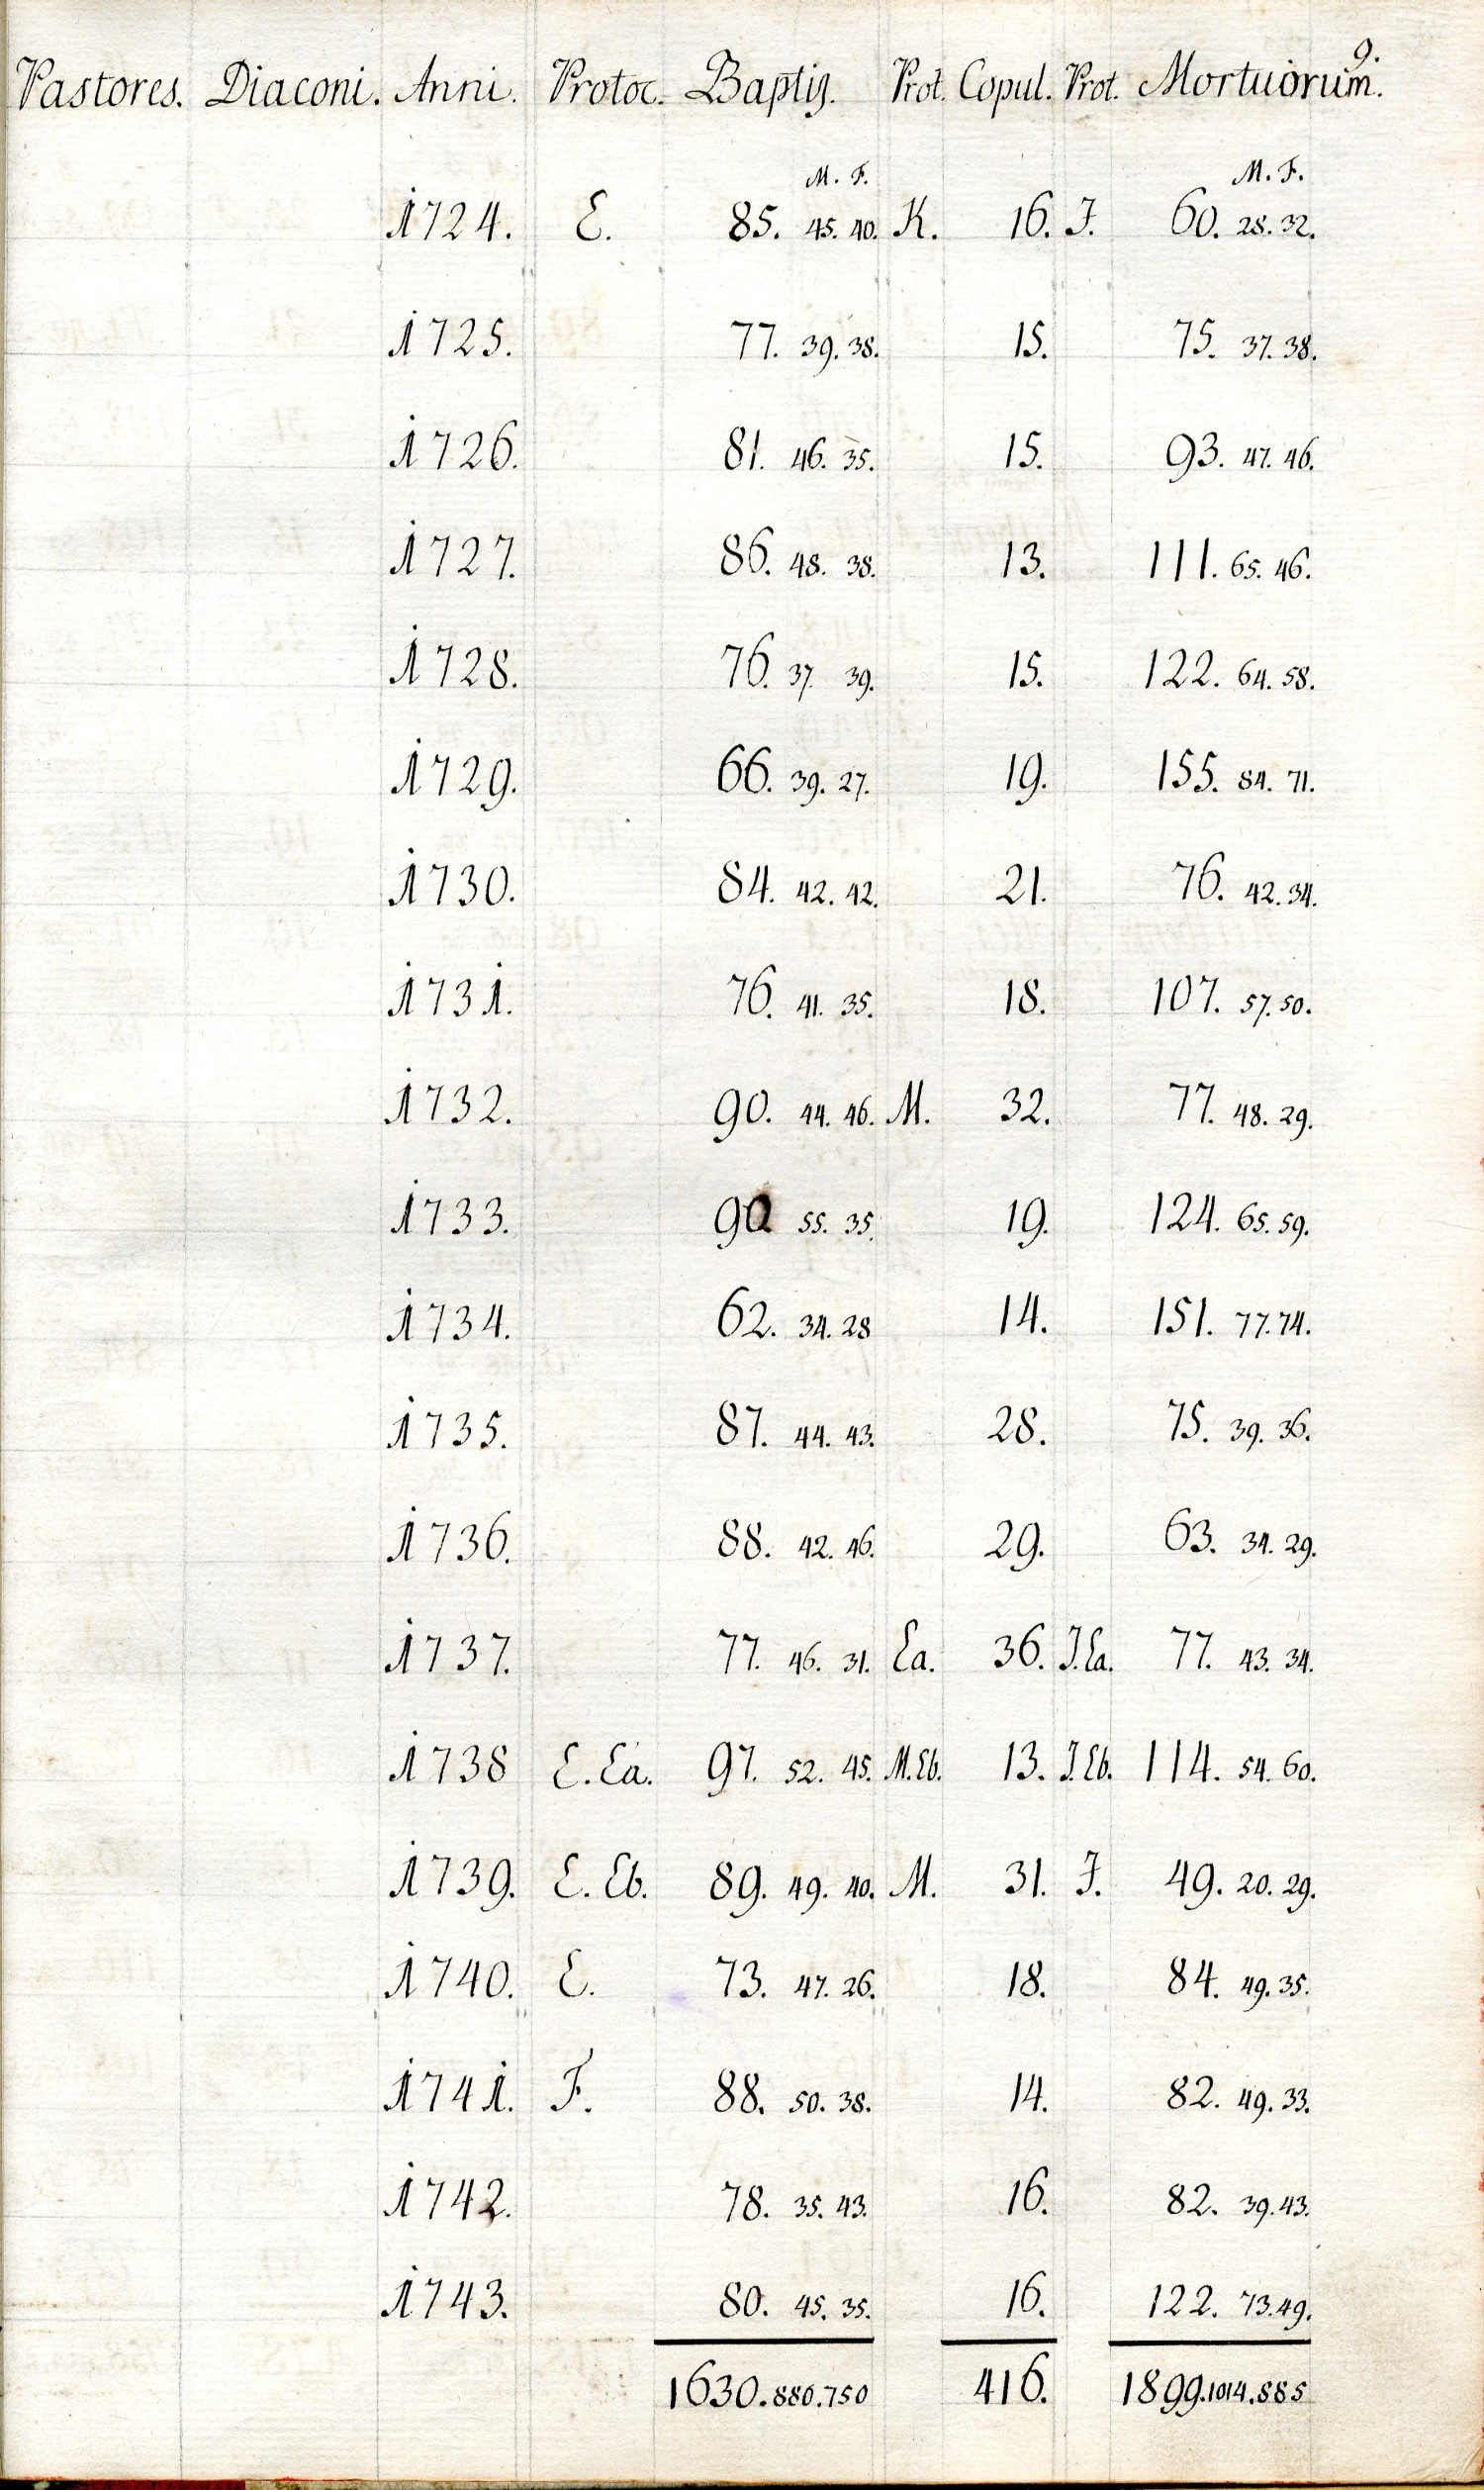 9.
Pastores. Diaconi. Anni. Protoc. Baptis. Prot. Copul. Prot. Mortuorum.
M. F. M. F.
1724. E. 85. 45. 40. K. 16. J. 60. 28. 32.
1725. 77. 39. 38. 15. 75. 37. 38.
1726. 81. 46. 35. 15. 93. 47. 46.
1727. 86. 48. 38. 13. 111. 65. 46.
1728. 76. 37. 39. 15. 122. 64. 58.
1729. 66. 39. 27. 19. 155. 84. 71.
1730. 84. 42. 42. 21. 76. 42. 34.
1731. 76. 41. 35. 18. 107. 57. 50.
1732. 90. 44. 46. M. 32. 77. 48. 29.
1733. 90 55. 35. 19. 124. 65. 59.
1734. 62. 34. 28 14. 151. 77. 74.
1735. 87. 44. 43. 28. 75. 39. 36.
1736. 88. 42. 46. 29. 63. 34. 29.
1737. 77. 46. 31. Ea. 36. J. Ea. 77. 43. 34.
1738 E. Ea. 97. 52. 45. M. Eb. 13. J. Eb. 114. 54. 60.
1739. E. Eb. 89. 49. 40. M. 31. J. 49. 20. 29.
1740. E. 73. 47. 26. 18. 84. 49. 35.
1741. F. 88. 50. 38. 14. 82. 49. 33.
1742. 78. 35. 43. 16. 82. 39. 43.
1743. 80. 45. 35. 16. 122. 73. 49.
1630. 880. 750 416. 1899. 1014. 885